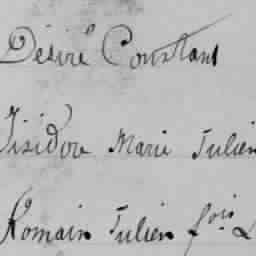 Désiré Constant
Isidore Marie Julien
Romain Julien fois